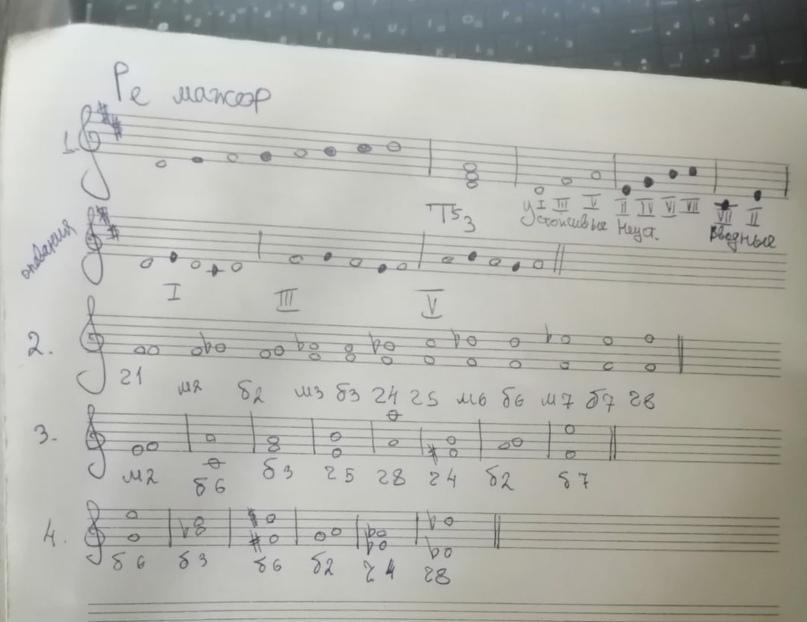 Ре мажор
1.
Т5 3 I III V II IV VI VII VII II
Устойчивые Неуст. Вводные
опевания
I III V
2.
ч1 м2 б2 м3 б3 ч4 ч5 м6 б6 м7 б7 ч8
3.
м2 б6 б3 ч5 ч8 ч4 б2 б7
4.
б6 б3 б6 б2 ч4 ч8